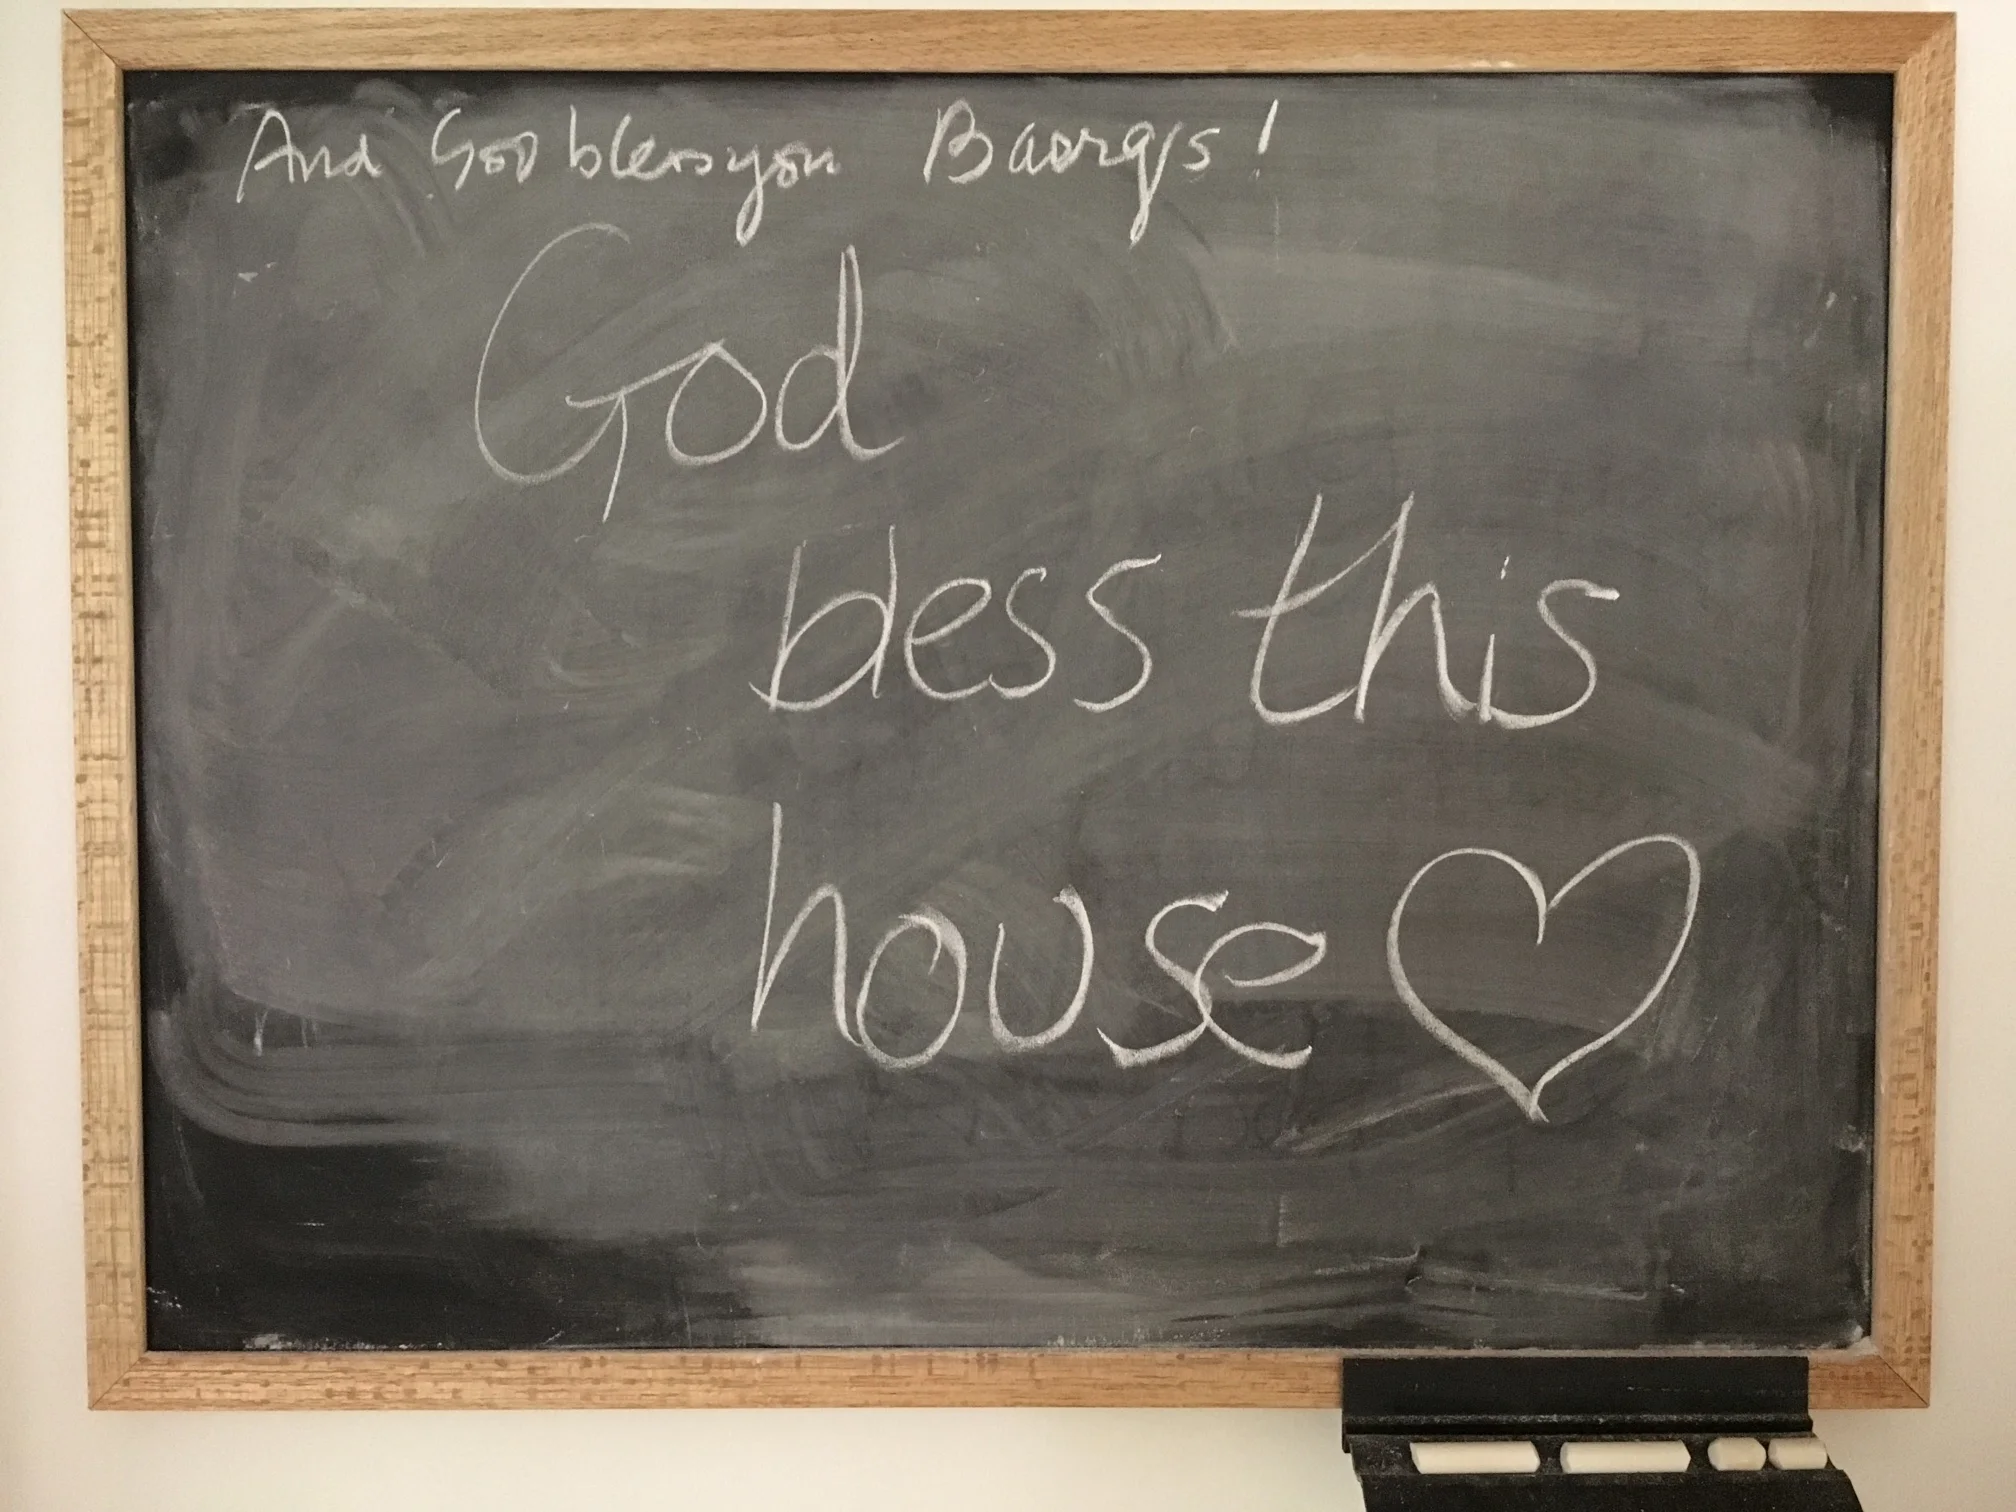 And God bless you Baergs!
God
bless this
house